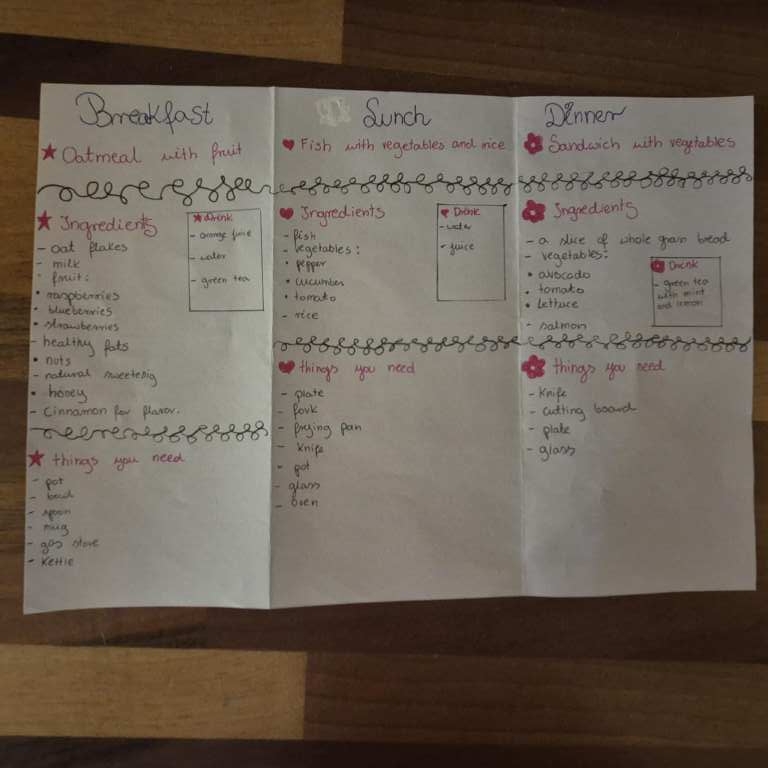 Breakfast
Oatmeal with fruit
Ingredients
- oat flakes
- milk
- fruit:
• raspberries
• blueberries
• strawberries
- healthy fats
• nuts
- natural
• honey
- Cinnamon for flavor.
drink
- orange
- water
- green tea
things you need
- pot
- bowl
- spoon
- mug
- gas stove
- kettle
Lunch
Fish with vegetables and rice
Ingredients
- fish
- vegetables:
• pepper
• cucumber
• tomato
- rice
Drink
- water
- juice
things you need
- plate
- fork
- frying pan
- knife
- pot
- glass
- oven
Dinner
Sandwich with vegetables
Ingredients
- a slice of whole grain bread
- vegetables:
• avocado
• tomato
• lettuce
- salmon
Drink
- green tea
with mint
and lemon
things you need
- knife
- cutting board
- plate
- glass